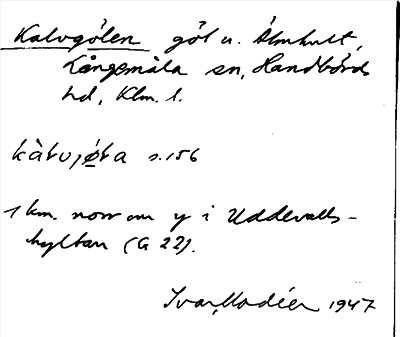 Kalvgölen göl u. Älmhult,
Långemåla sn, Handbörds
hd, Klm. l.
kàlvjø̀la s. 156
1 km. norr om y i Uddevalls-
hyltan (G 22).
Ivar Modéer 1947